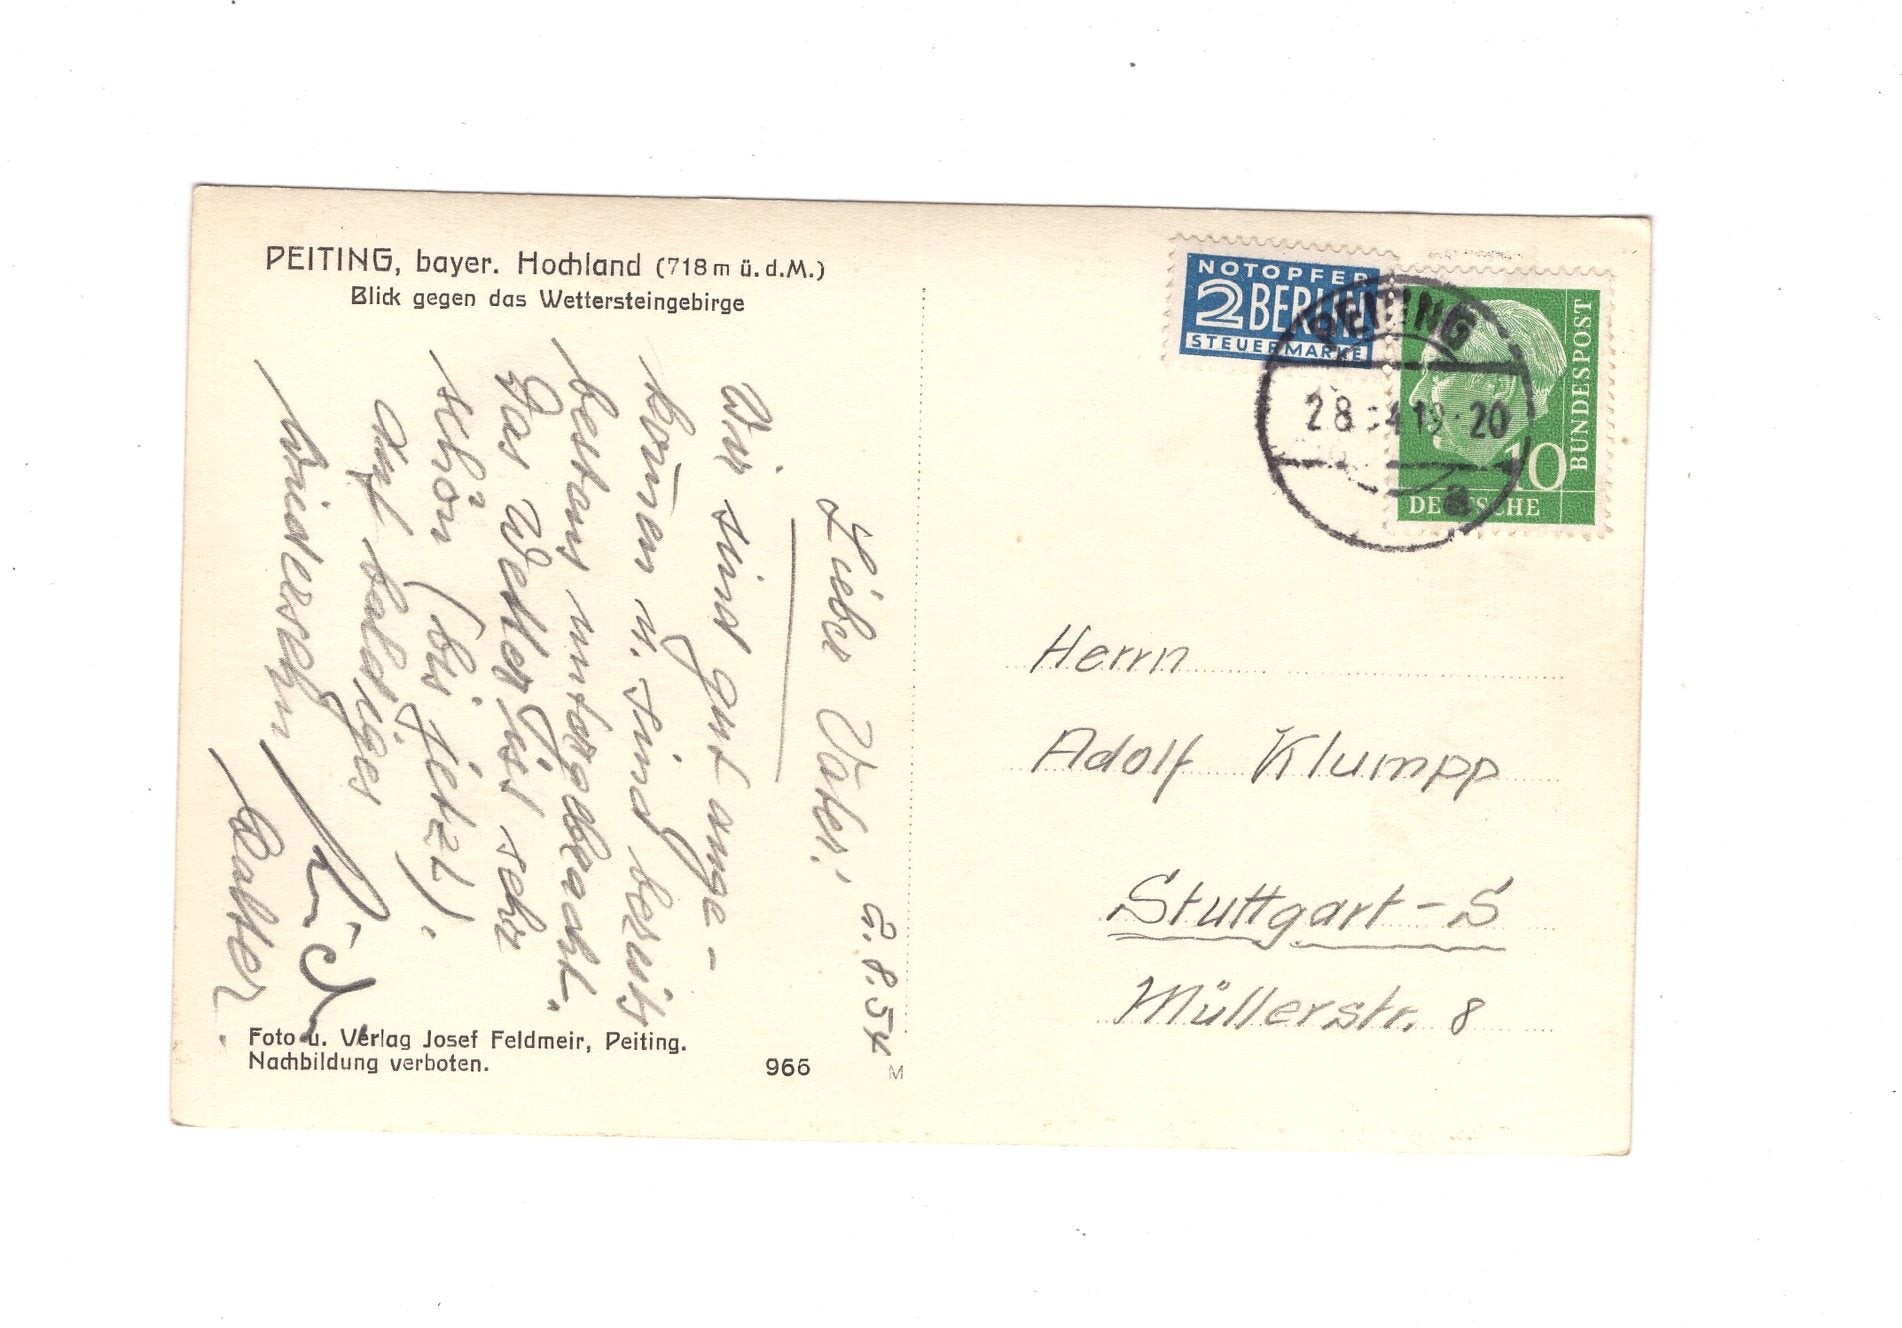 PEITING, bayer. Hochland (718 m ü. d. M.)
Blick gegen das Wettersteingebirge
2.8.54
Lieber Vater!
Wir sind gut ange-
kom̄en u. sind bereits
bestens untergebracht.
Das Wetter ist sehr
schön (bis jetzt).
Auf baldiges
Wiedersehn
Walter
Foto u. Verlag Josef Feldmeir, Peiting.
Nachbildung verboten.
966
M
NOTOPFER
2 BERLIN
STEUERMARKE
PEITING
28 54 19-20
a
10
DEUTSCHE
BUNDESPOST
Herrn
Adolf Klumpp
Stuttgart-S
Müllerstr. 8